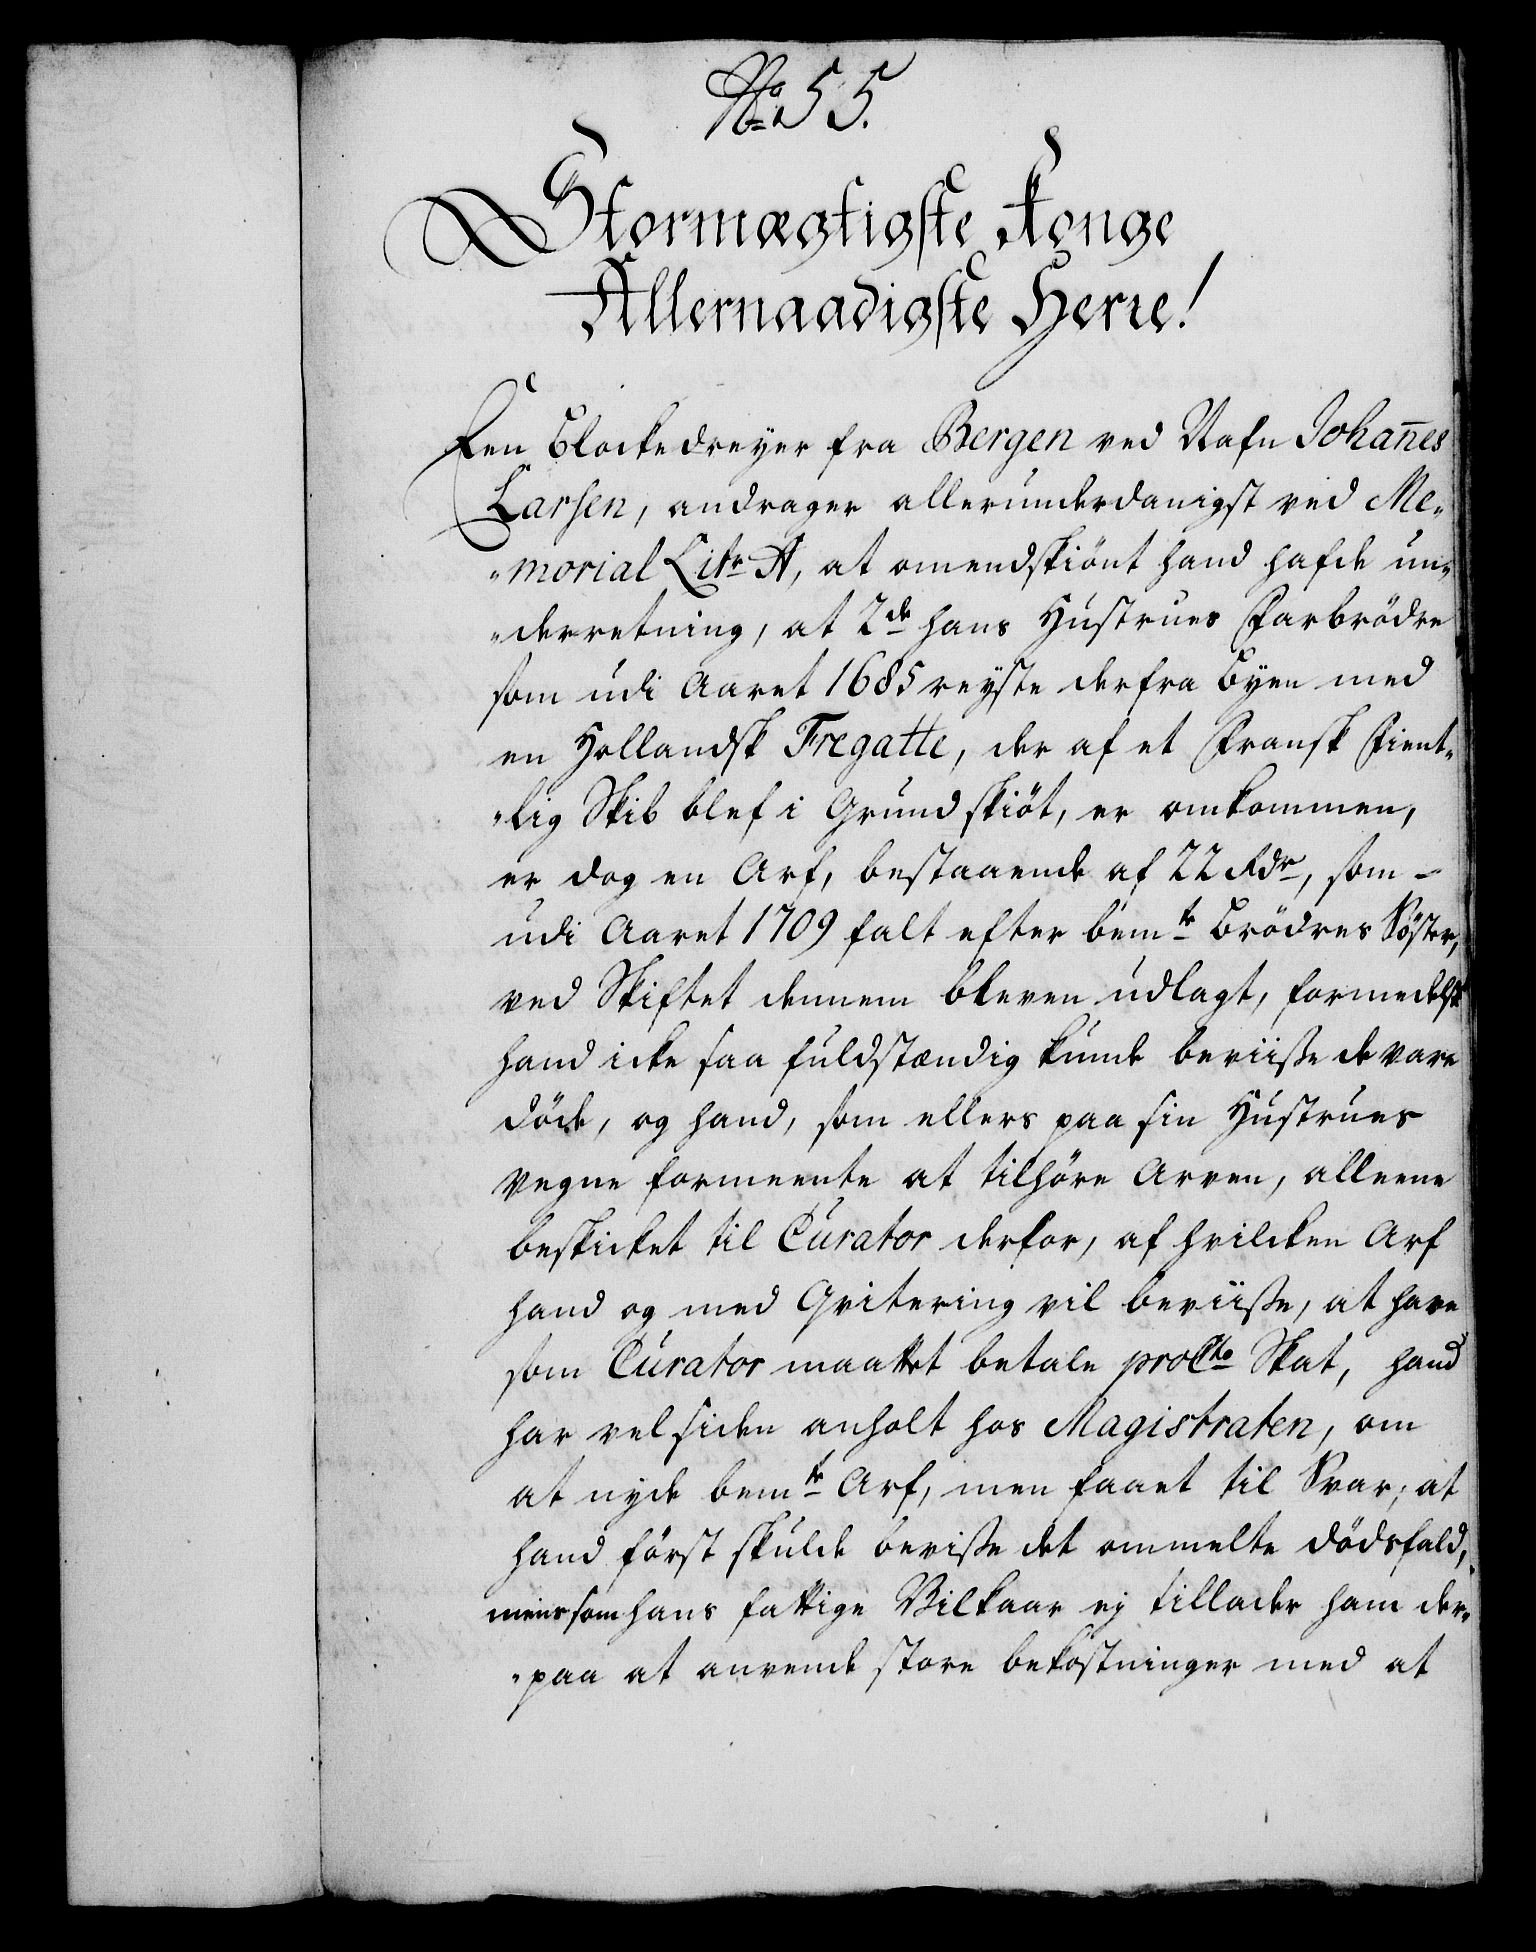 No. 55.
Stormægtigste Konge
Allernaadigste Herre!
Een Blockedreyer fra Bergen ved Nafn Johannes
Larsen, andrager allerunderdanigst ved Me„
„morial Litr A, at omendskiönt hand hafde un„
„derretning, at 2de hans Hustrues Farbrödre
som udi Aaret 1685 reyste derfra Byen med
en Hollandsk Fregatte, der af et Fransk Fient„
„lig Skib blef i Grund skiöt, er omkommen,
er dog en Arf, bestaaende af 22 Rdr, som
udi Aaret 1709 falt efter bemte Brödres Söster,
ved Skiftet dennem bleven udlagt, formedelst
hand icke saa fuldstændig kunde beviisse de vare
döde, og hand, som ellers paa sin Hustrues
vegne formeente at tilhöre Arven, alleene
beskicket til Curator derfor, af hvilcken Arf
hand og med Qvitering vil beviisse, at have
som Curator maattet betale proCto Skat, hand
har vel siden anholt hos Magistraten, om
at nyde bemte Arf, men faaet til Svar; at
hand först skulde bevisse det ommelte dödsfald,
mens som hans fattige Vilkaar ej tillader ham der„
„paa at anvende store bekostninger med at